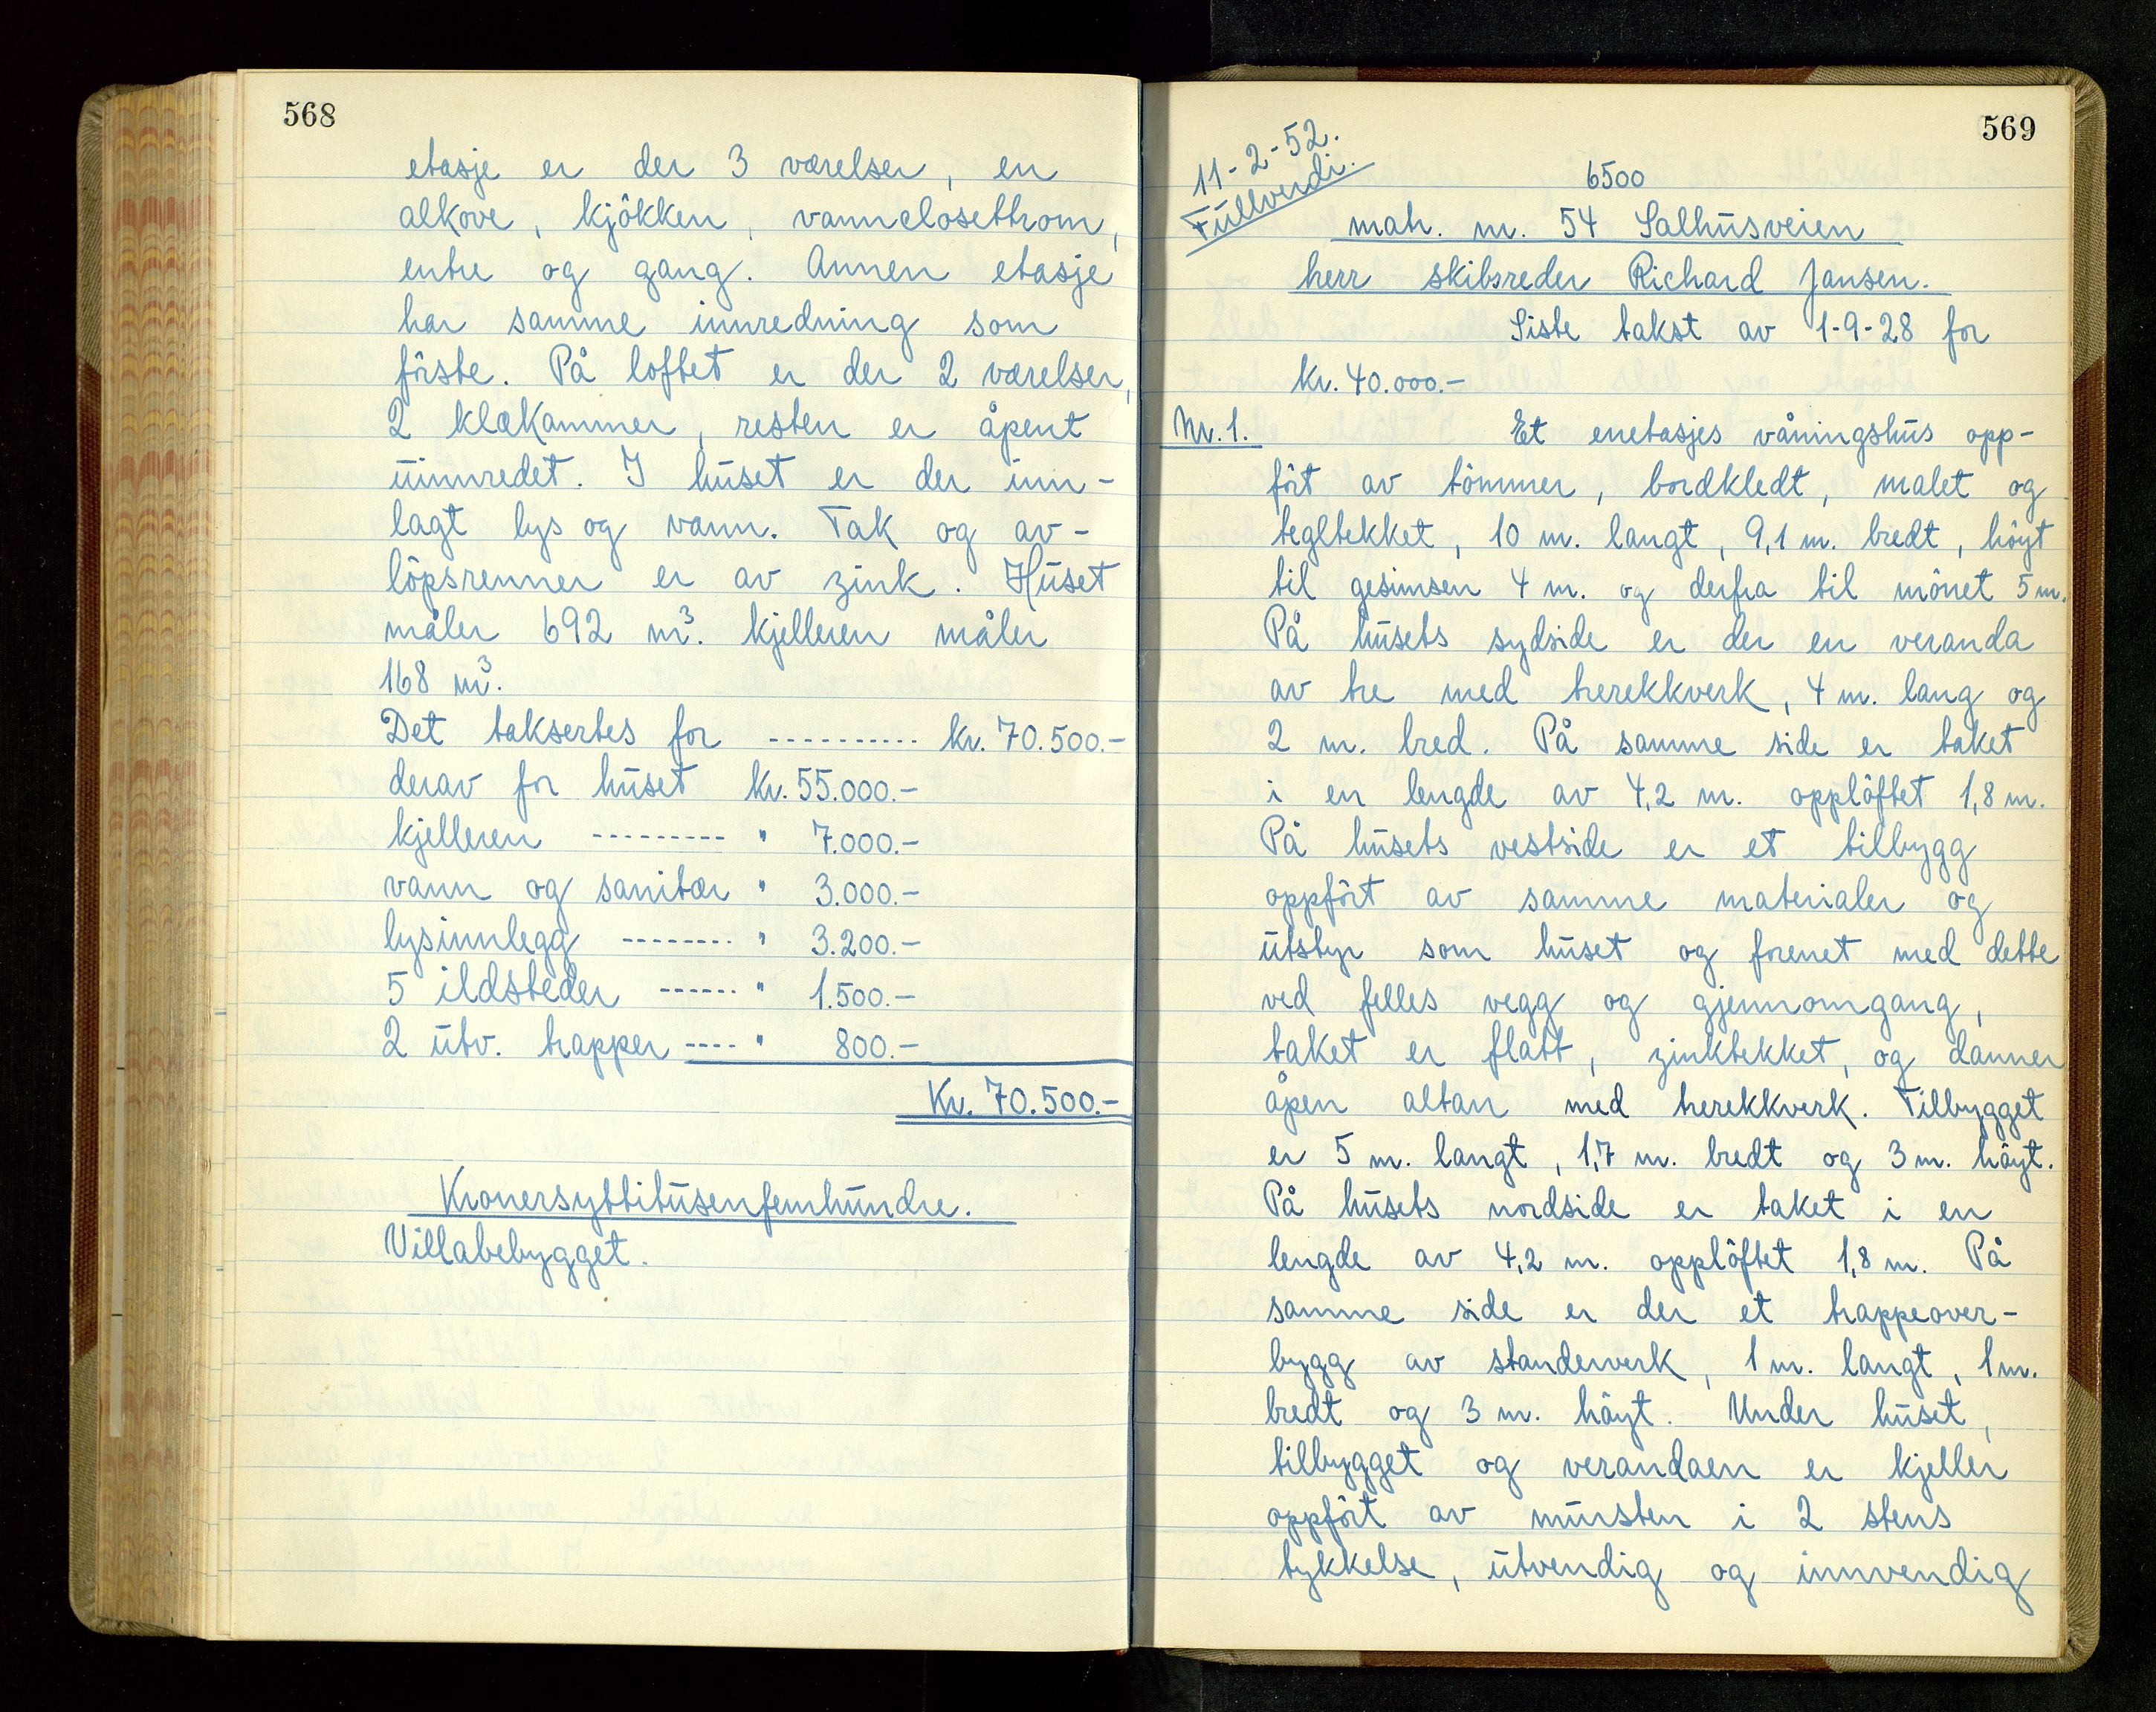 568
etasje er der 3 værelser, en
alkove, kjökken, vannclosettrom,
entre og gang. Annen etasje
har samme innredning som
förste. På loftet er der 2 værelser,
2 klækammer, resten er åpent
uinnredet. I huset er der inn-
lagt lys og vann. Tak og av-
löpsrenner er av zink. Huset
måler 692 m³. kjelleren måler
168 m³.
Det taksertes for ---------- kr. 70.500.-
derav for huset kr. 55.000.-
kjelleren --------- " 7.000.-
vann og sanitær " 3.000.-
lysinnlegg -------- " 3.200.-
5 ildsteder ------ " 1.500.-
2 utv. trapper ---- " 800.-
Kr. 70.500.-
Kronersyttitusenfemhundre.
Villabebygget.
569
11-2-52.
Fullverdi.
6500
matr. nr. 54 Salhusveien
herr skibsreder Richard Jansen.
Siste takst av 1-9-28 for
kr. 40.000.-
Nr. 1. Et enetasjes våningshus opp-
fört av tömmer, bordkledt, malet og
tegltekket, 10 m. langt, 9,1 m. bredt, höyt
til gesimsen 4 m. og derfra til mönet 5 m.
På husets sydside er der en veranda
av tre med trerekkverk, 4 m. lang og
2 m. bred. På samme side er taket
i en lengde av 4,2 m. opplöftet 1,8 m.
På husets vestside er et tilbygg
oppfört av samme materialer og
utstyr som huset og forenet med dette
ved felles vegg og gjennomgang,
taket er flatt, zinktekket, og danner
åpen altan med trerekkverk. Tilbygget
er 5 m. langt, 1,7 m. bredt og 3 m. höyt.
På husets nordside er taket i en
lengde av 4,2 m. opplöftet 1,8 m. På
samme side er der et trappeover-
bygg av standerverk, 1 m. langt, 1 m.
bredt og 3 m. höyt. Under huset,
tilbygget og verandaen er kjeller
oppfört av mursten i 2 stens
tykkelse, utvendig og innvendig